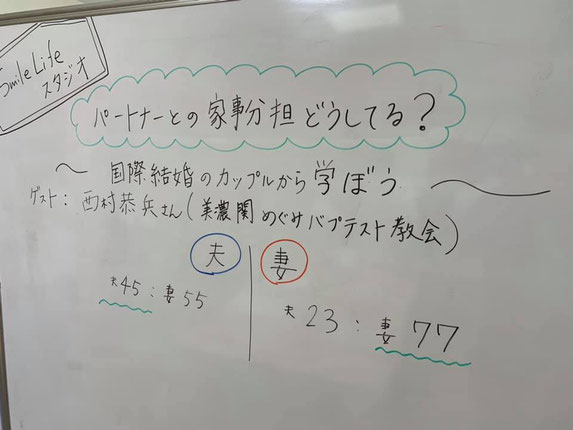 Smile Life
スタジオ
パートナーとの家事分担どうしてる?
〜 国際結婚のカップルから学ぼう 〜
ゲスト: 西村恭兵さん(美濃関めぐみバプテスト教会)
夫 妻
夫45:妻55 夫23:妻77